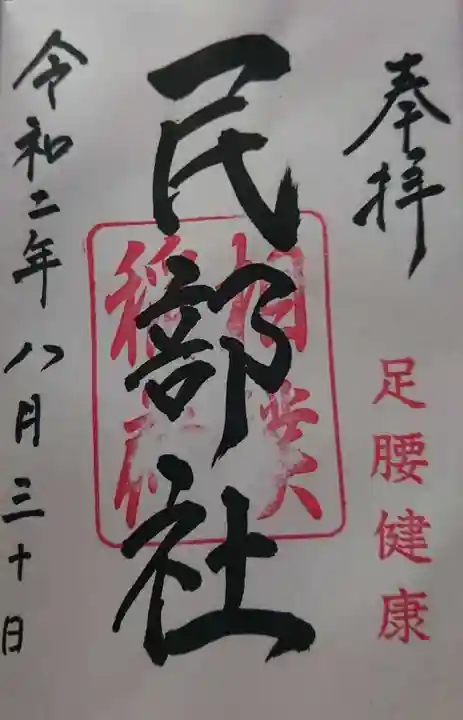 奉拝
足腰健康
民部社
相模
稲荷
令和二年八月三十日